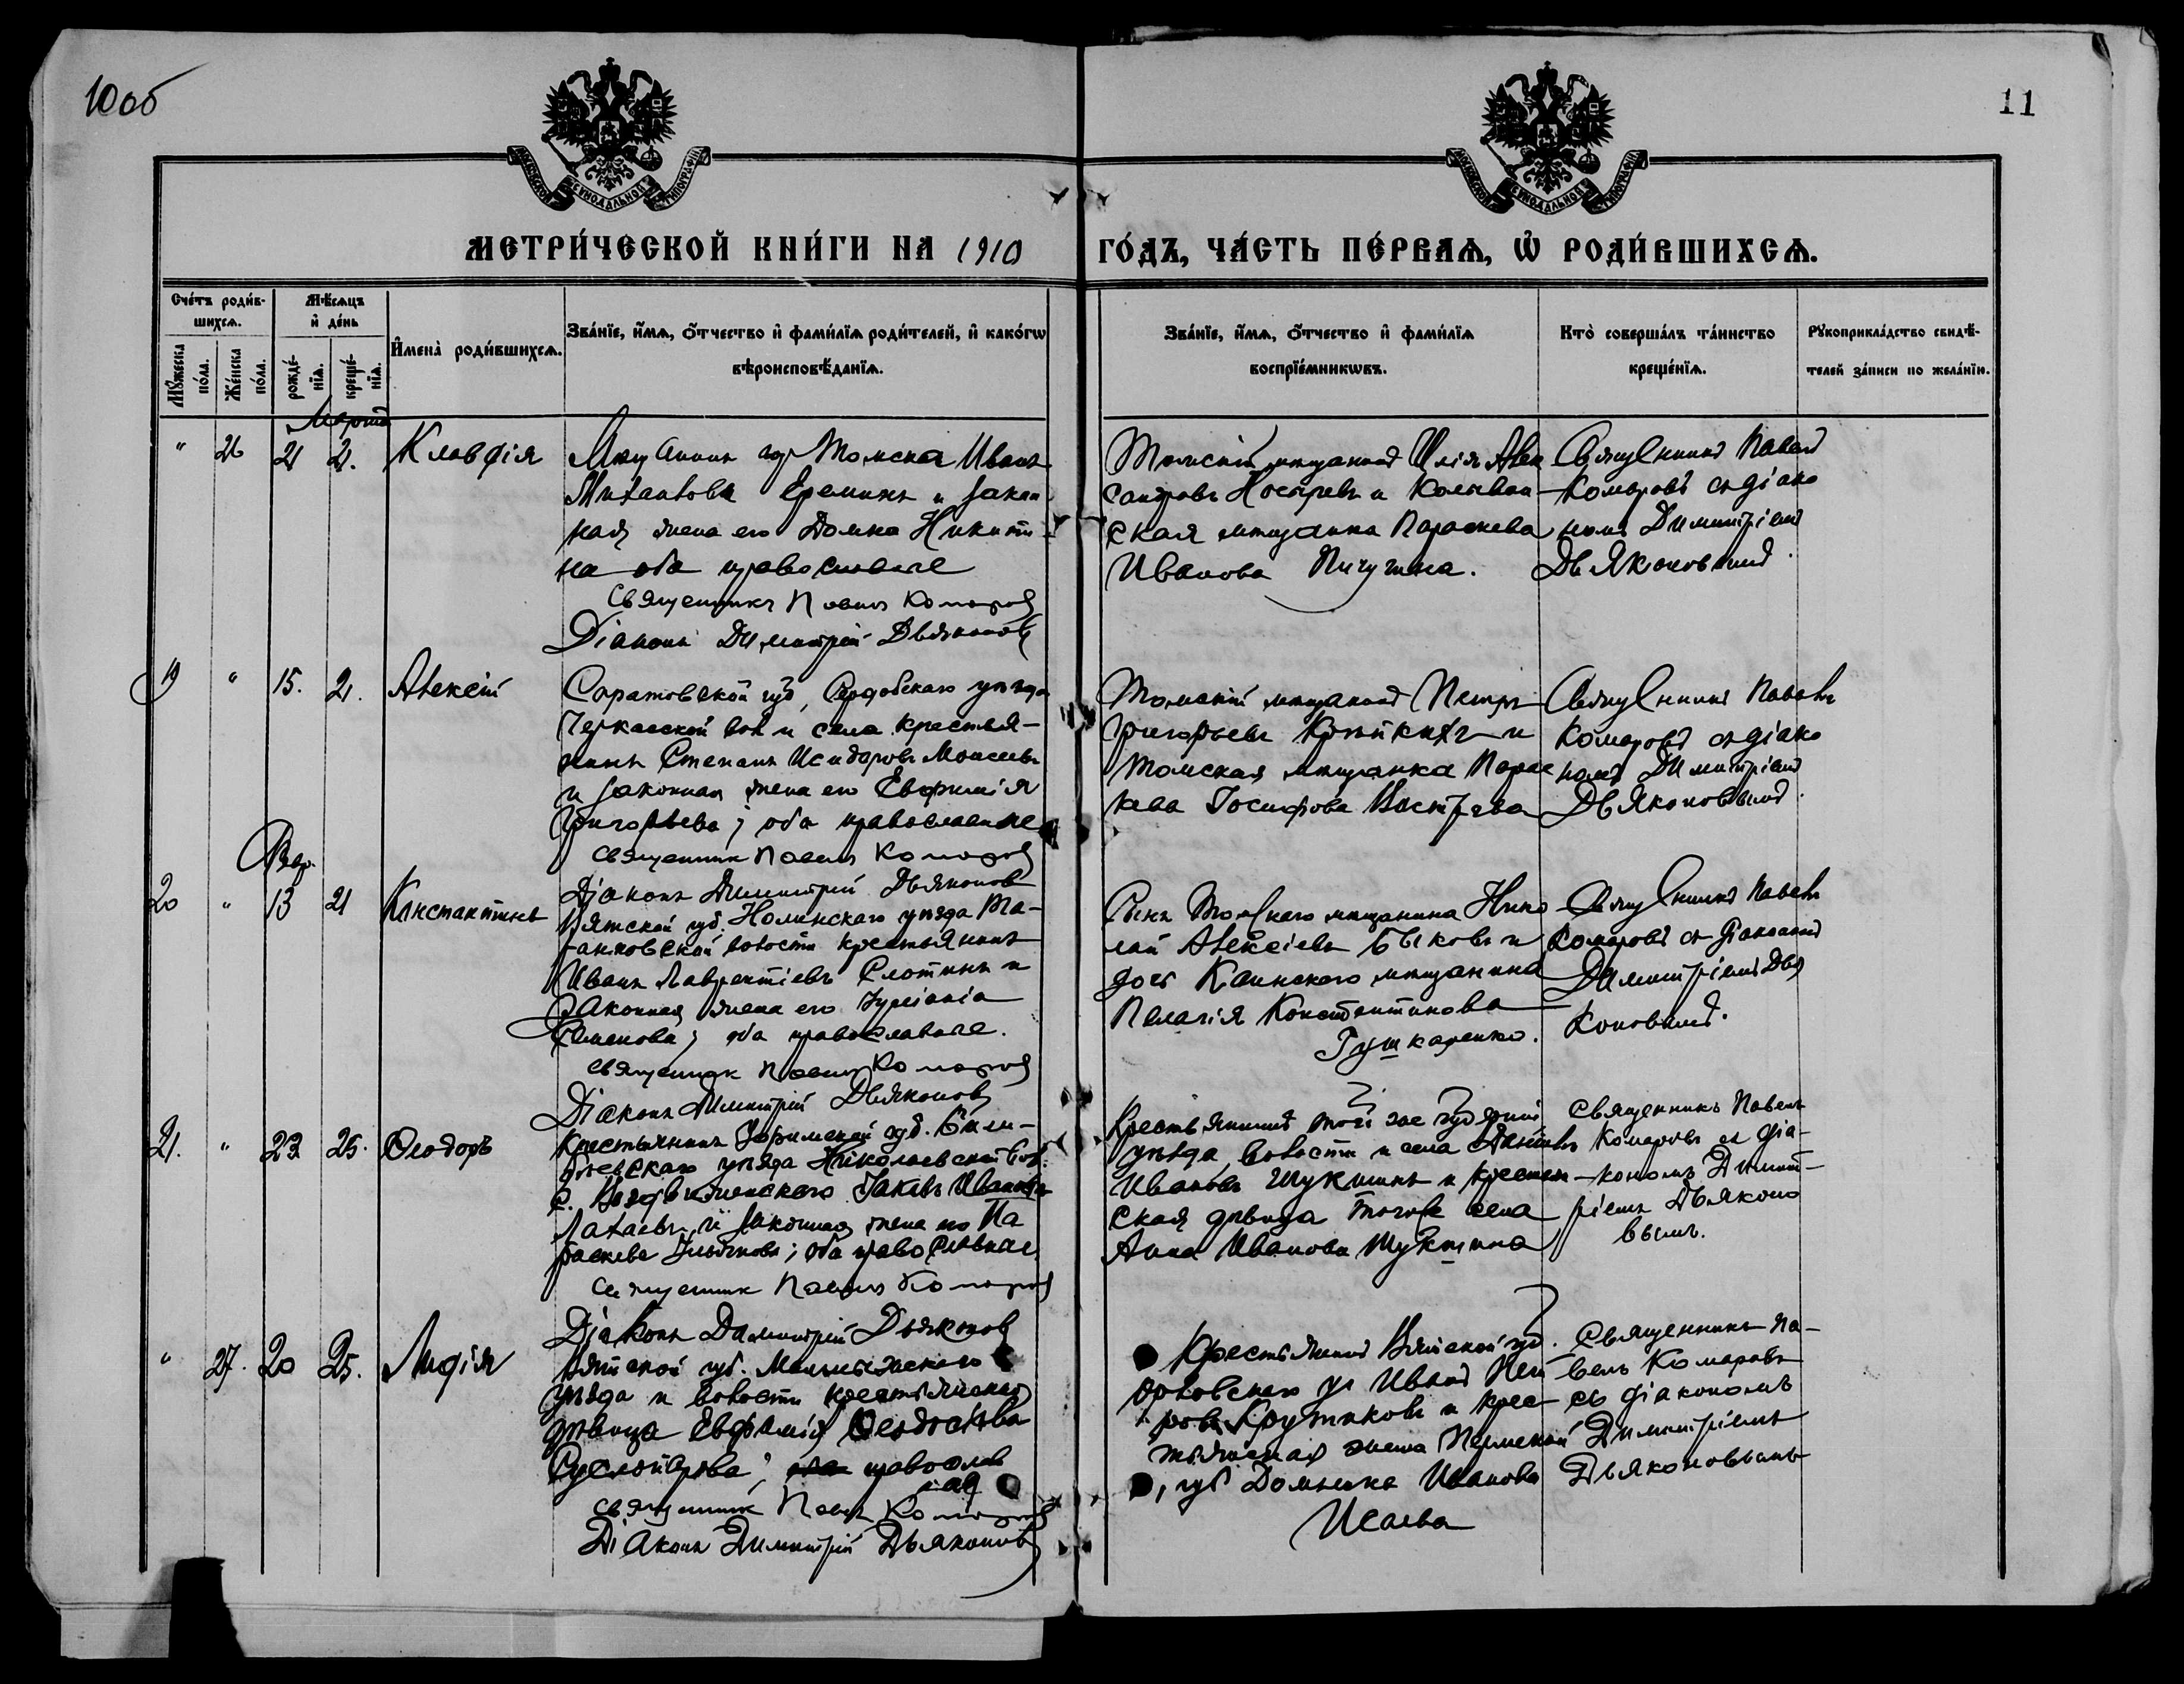 10об
11
МОСКОВСКОЙ СѴНОДАЛЬНОЙ ТИПОГРАФІИ
МОСКОВСКОЙ СѴНОДАЛЬНОЙ ТИПОГРАФІИ
МЕТРИ́ЧЕСКОЙ КНИ́ГИ НА 1910 ГО́ДЪ, ЧА́СТЬ ПЕ́РВАѦ, Ѡ҆ РОДИ́ВШИХСѦ.
Сче́тъ роди́в-
шихсѧ.
Мꙋ́жеска по́ла.
Же́нска по́ла.
Мѣ́сѧцъ
и҆ де́нь
рожде́-
нїѧ.
креще́-
нїѧ.
И҆мена̀ роди́вшихсѧ.
Зва́нїе, и҆́мѧ, ѻ҆́тчество и҆ фами́лїѧ роди́телей, и҆ како́гѡ
вѣроисповѣ́данїѧ.
Зва́нїе, и҆́мѧ, ѻ҆́тчество и҆ фами́лїѧ
воспрїе́мникѡвъ.
Кто̀ соверша́лъ та́инство
креще́нїѧ.
Рꙋкоприкла́дство свидѣ́-
телей за́писи по жела́нїю.
Марта
" 26 21 21. Клавдія
Мѣщанинъ гор Томска Иванъ
Михайловъ Ереминъ и закон
ная жена его Домна Никити-
на оба православные
Священникъ Павелъ Комаровъ
Діаконъ Димитрій Дьяконовъ
Томскій мѣщанинъ Илія Алек
сандровъ и Колыван-
ская мѣщанка Параскева
Иванова Пичугина.
Священникъ Павелъ
Комаровъ съ діако
номъ Димитріемъ
Дьяконовымъ.
19 " 15. 21. Алексій
Саратовской губ, Сердобскаго уѣзда
Черкасской вол и села крестья-
нинъ Степанъ Исидоровъ Моисеевъ
и законная жена его Евфимія
Григорьева; оба православные
Священникъ Павелъ Комаровъ
Діаконъ Димитрій Дьяконовъ
Томскій мѣщанинъ Петръ
Григорьевъ и
Томская мѣщанка Парас
кева Іосифова Вострева
Священникъ Павелъ
Комаровъ съ діако
номъ Димитріемъ
Дьяконовымъ.
Февр.
20 " 13 21 Константинъ
Вятской губ. Нолинскаго уѣзда Та-
ранковской волости крестьянинъ
Иванъ Лаврентіевъ Слотинъ и
законная жена его Іуліанія
Семенова; оба православные.
Священникъ Павелъ Комаровъ
Діаконъ Димитрій Дьяконовъ
Сынъ Томскаго мѣщанина Нико
лай Алексіевъ Быковъ и
дочь Каинскаго мѣщанина
Пелагія Константинова
Гушкаренко.
Священникъ Павелъ
Комаровъ съ діакономъ
Димитріемъ Дья
коновымъ.
21. " 23 25. Ѳеодоръ
Крестьянинъ Уфимской губ. Беле-
беевскаго уѣзда Николаевской вол.
с. Воздвиженскаго Іаковъ Ивановъ
и законная жена его Па
раскева; оба православные
Священникъ Павелъ Комаровъ
Діаконъ Димитрій Дьяконовъ
Крестьянинъ той же губерніи
уѣзда, волости и села
Ивановъ Шукшинъ и крестьян-
ская дѣвица тогоже села
Анна Иванова Шукшина
Священникъ Павелъ
Комаровъ съ діа-
кономъ Димит-
ріемъ Дьяконо
вымъ.
" 27. 20 25. Лидія
Вятской губ. Малмыжскаго
уѣзда и волости крестьянская
дѣвица Евфимія Ѳеодосіева
православ
ная
Священникъ Павелъ Комаровъ
Діаконъ Димитрій Дьяконовъ
Крестьянинъ Вятской губ.
Орловскаго у. Иванъ Пет
ровъ Крутиковъ и крес-
тьянская жена Пермской
губ Домника Иванова
Исаева
Священникъ Па-
велъ Комаровъ
съ діакономъ
Димитріемъ
Дьяконовымъ